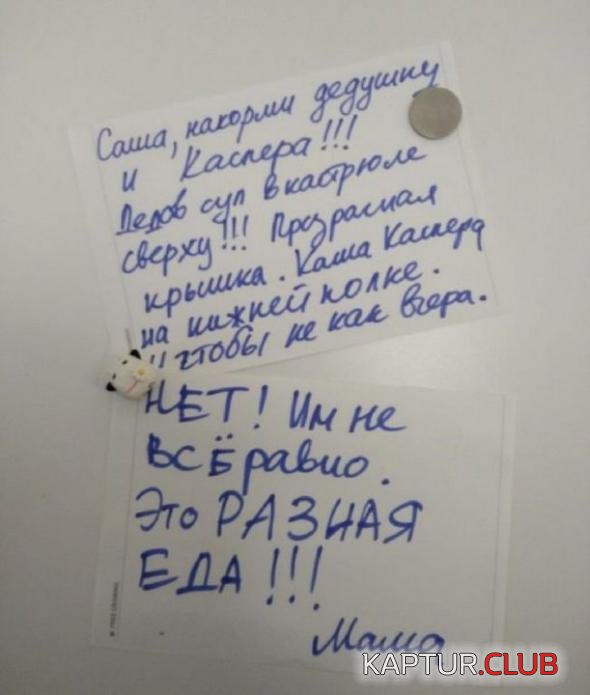 Саша, накорми дедушку
и Каспера!!!
Дедов суп в кастрюле
сверху!!! Прозрачная
крышка. Каша Каспера
на нижней полке.
И чтобы не как вчера.
НЕТ! Им не
ВСЁ равно.
Это РАЗНАЯ
ЕДА!!!
Мама
KAPTUR.CLUB